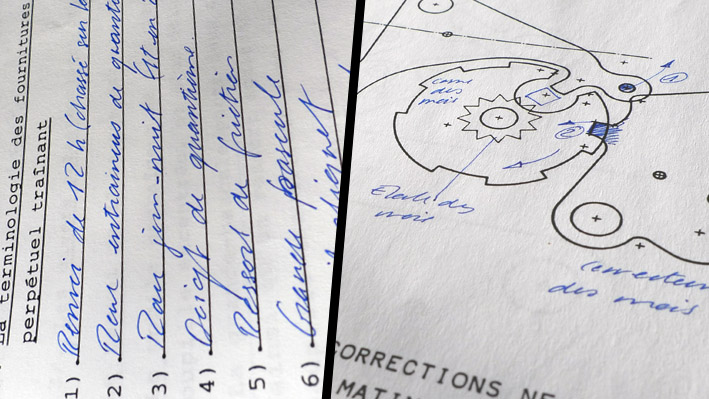 La terminologie des fournitures
perpétuel traînant
1) Renvoi de 12 h (chassé sur la
2) Roue entraineuse de quanti
3) Roue jour-nuit Est en
4) Doigt de quantième.
5) Ressort de friction
6) Grande bascule
came
des
mois
1
2
Etoile des
mois
Correcteur
des mois
CORRECTIONS NE
MATIN